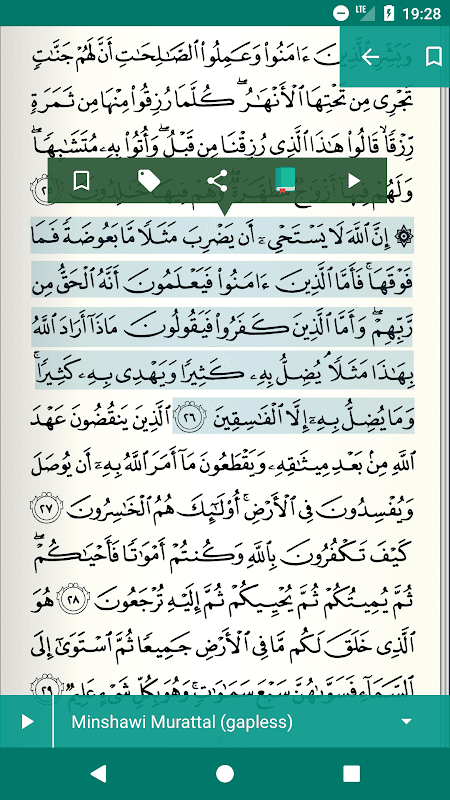 LTE 19:28
وَبَشِّرِ ٱلَّذِينَ ءَامَنُوا۟ وَعَمِلُوا۟ ٱلصَّـٰلِحَـٰتِ أَنَّ لَهُمْ جَنَّـٰتٍ
تَجْرِى مِن تَحْتِهَا ٱلْأَنْهَـٰرُ ۖ كُلَّمَا رُزِقُوا۟ مِنْهَا مِن ثَمَرَةٍ
رِّزْقًا ۙ قَالُوا۟ هَـٰذَا ٱلَّذِى رُزِقْنَا مِن قَبْلُ ۖ وَأُتُوا۟ بِهِۦ مُتَشَـٰبِهًا ۖ
وَلَهُمْ فِيهَآ أَزْوَٰجٌ مُّطَهَّرَةٌ ۖ وَهُمْ فِيهَا خَـٰلِدُونَ ٢٥
۞ إِنَّ ٱللَّهَ لَا يَسْتَحْىِۦٓ أَن يَضْرِبَ مَثَلًا مَّا بَعُوضَةً فَمَا
فَوْقَهَا ۚ فَأَمَّا ٱلَّذِينَ ءَامَنُوا۟ فَيَعْلَمُونَ أَنَّهُ ٱلْحَقُّ مِن
رَّبِّهِمْ ۖ وَأَمَّا ٱلَّذِينَ كَفَرُوا۟ فَيَقُولُونَ مَاذَآ أَرَادَ ٱللَّهُ
بِهَـٰذَا مَثَلًا ۘ يُضِلُّ بِهِۦ كَثِيرًا وَيَهْدِى بِهِۦ كَثِيرًا ۚ
وَمَا يُضِلُّ بِهِۦٓ إِلَّا ٱلْفَـٰسِقِينَ ٢٦ ٱلَّذِينَ يَنقُضُونَ عَهْدَ
ٱللَّهِ مِنۢ بَعْدِ مِيثَـٰقِهِۦ وَيَقْطَعُونَ مَآ أَمَرَ ٱللَّهُ بِهِۦٓ أَن يُوصَلَ
وَيُفْسِدُونَ فِى ٱلْأَرْضِ ۚ أُو۟لَـٰٓئِكَ هُمُ ٱلْخَـٰسِرُونَ ٢٧
كَيْفَ تَكْفُرُونَ بِٱللَّهِ وَكُنتُمْ أَمْوَٰتًا فَأَحْيَـٰكُمْ ۖ
ثُمَّ يُمِيتُكُمْ ثُمَّ يُحْيِيكُمْ ثُمَّ إِلَيْهِ تُرْجَعُونَ ٢٨ هُوَ
ٱلَّذِى خَلَقَ لَكُم مَّا فِى ٱلْأَرْضِ جَمِيعًا ثُمَّ ٱسْتَوَىٰٓ إِلَى
ٱلسَّمَآءِ فَسَوَّىٰهُنَّ سَبْعَ سَمَـٰوَٰتٍ ۚ وَهُوَ بِكُلِّ شَىْءٍ عَلِيمٌ ٢٩
Minshawi Murattal (gapless)